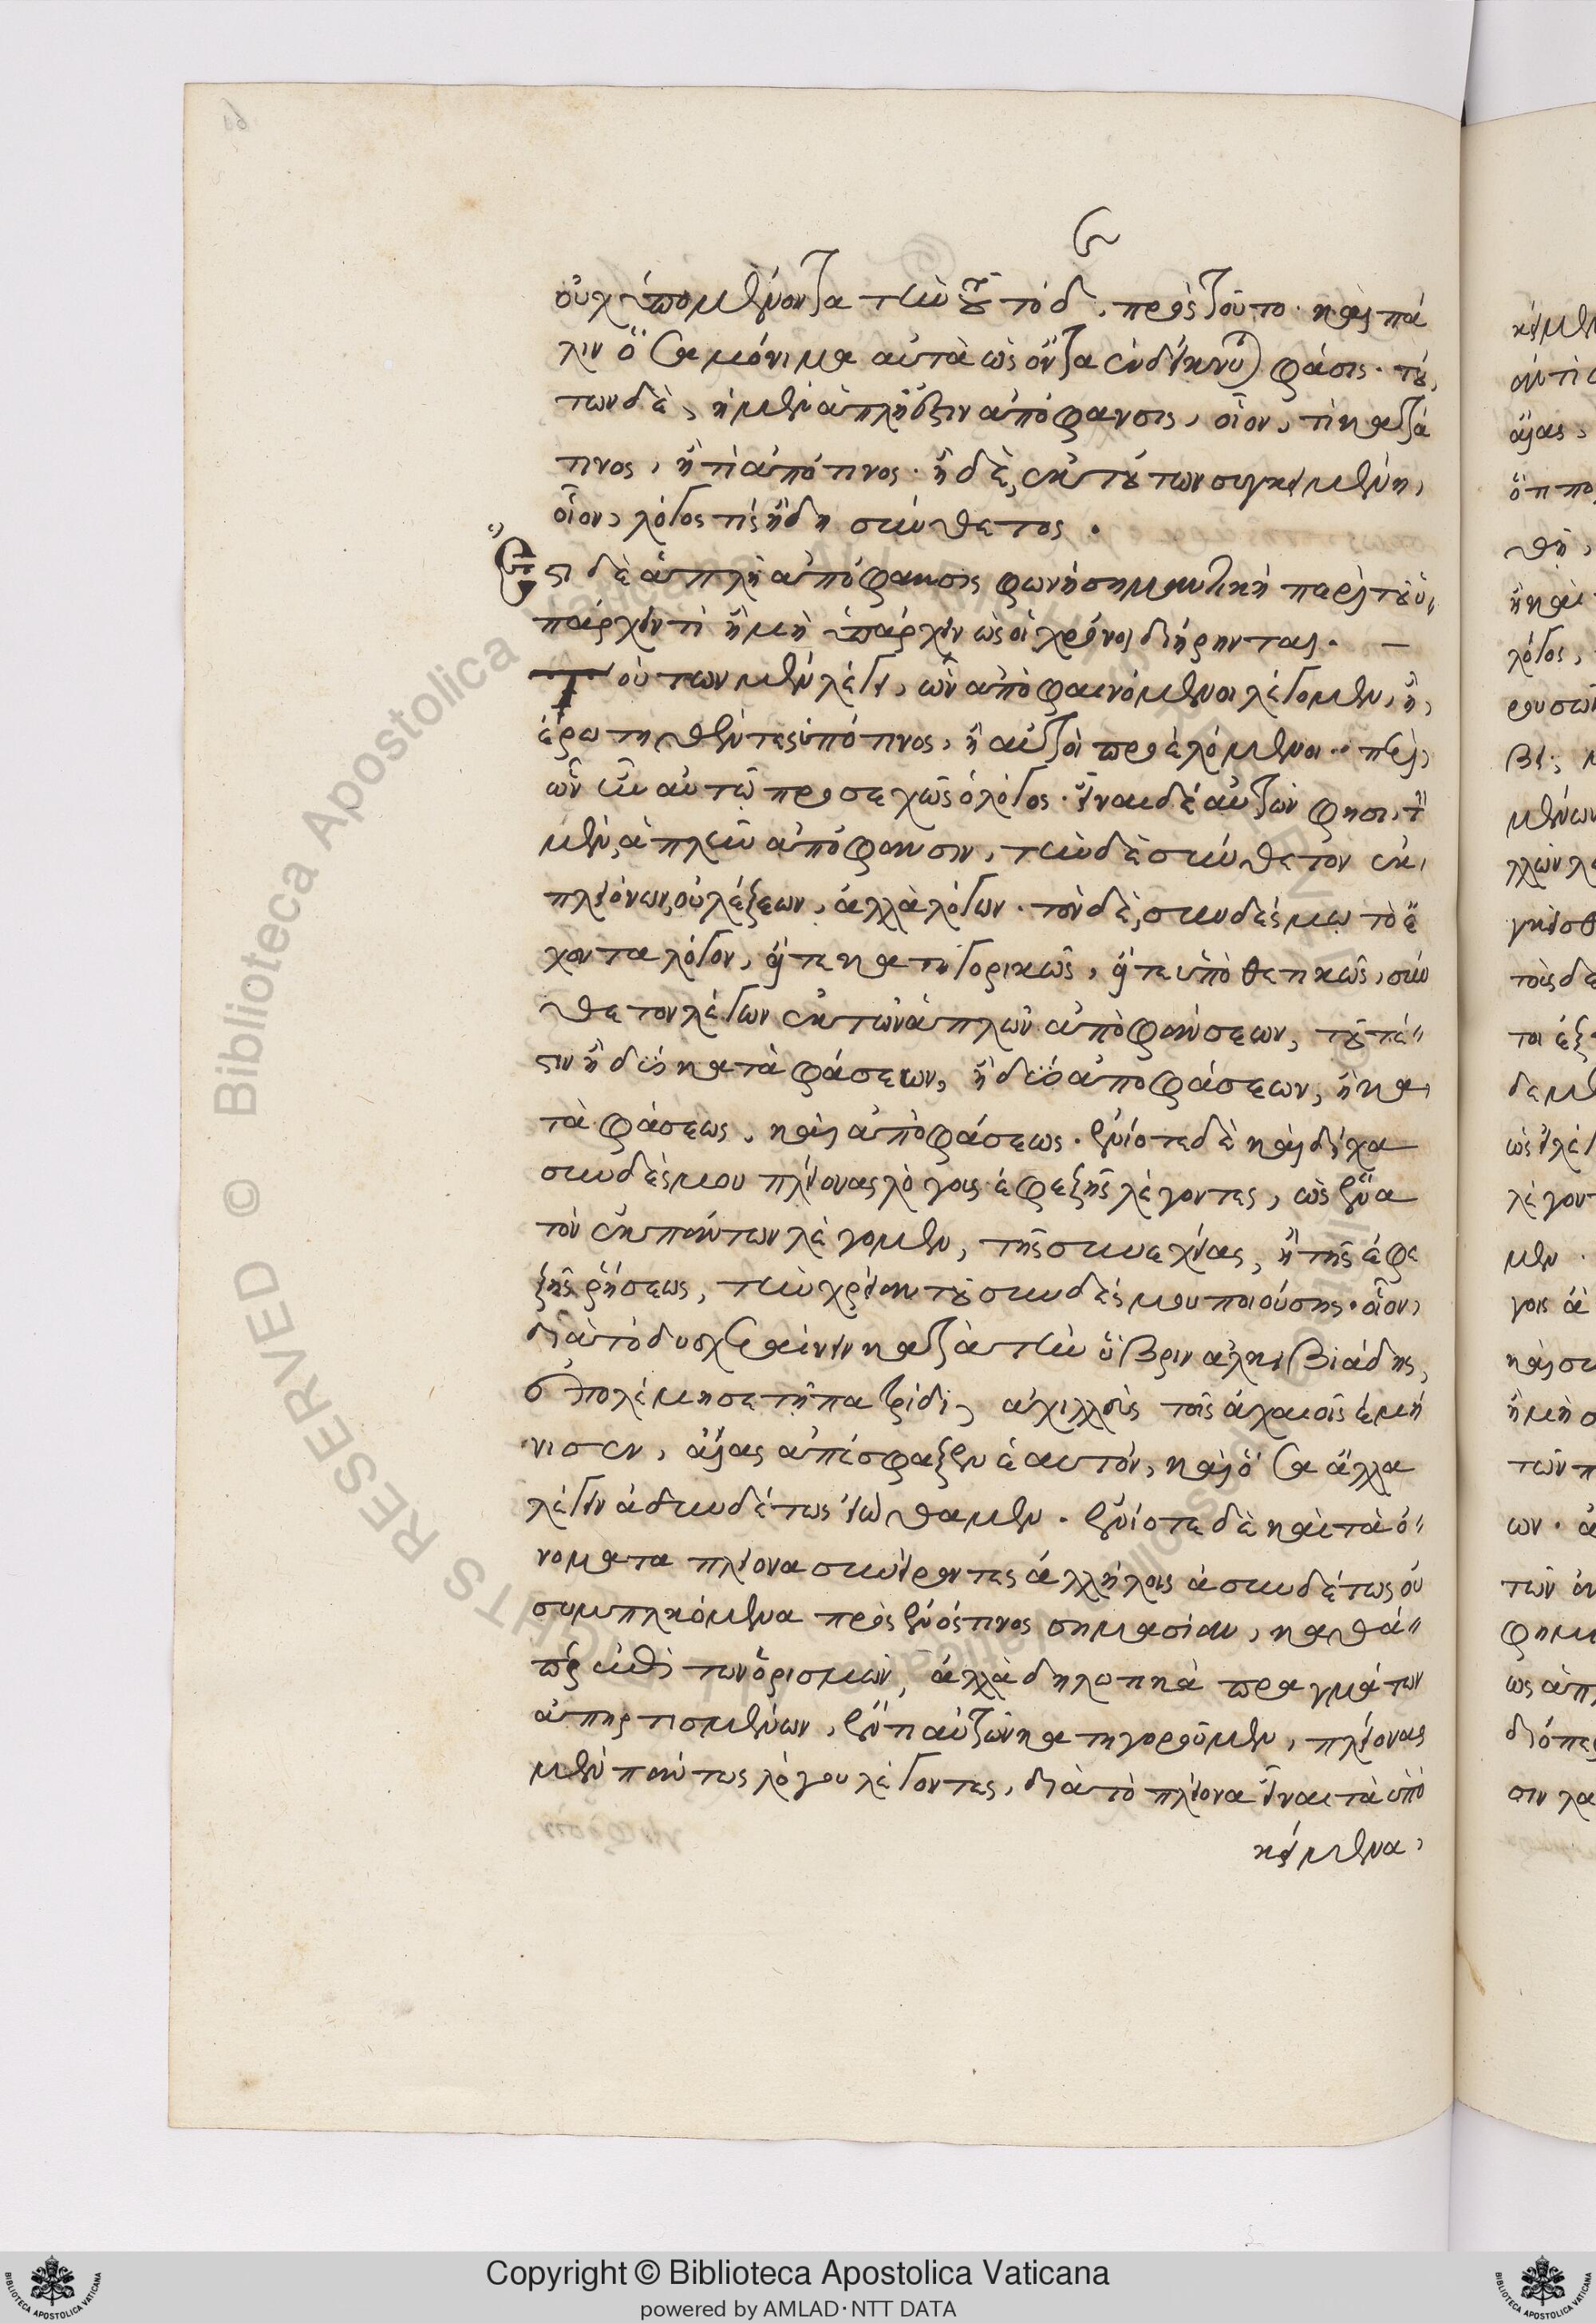 οὐχ ὑπομένοντα τὴν τοῦ τόδε πρὸς τοῦτο. καὶ πά
λιν ὅσα μόνιμα αὐτὰ ὡς ὄντα ἐνδείκνυται φάσις. τού
των δὲ, ἡ μὲν ἁπλῆ ἐστιν ἀπόφανσις, οἷον, τὶ κατά
τινος, ἢ τὶ ἀπό τινος. ἡ δὲ, ἐκ τούτων συγκειμένη,
οἷον, λόγος τίς ἤδη σύνθετος.
Ἔστι δὲ ἁπλῆ ἀπόφανσις φωνὴ σημαντικὴ περὶ τοῦ ὑ
πάρχειν τὶ ἢ μὴ ὑπάρχειν ὡς οἱ χρόνοι διῄρηνται.
Τούτων μὲν λέγει, ὧν ἀποφαινόμενοι λέγομεν, ἢ,
ἐρωτηθέντες ὑπό τινος, ἢ αὐτοὶ προελόμενοι. περὶ
ὧν ἦν αὐτῷ προσεχῶς ὁ λόγος. εἶναι δὲ αὐτῶν φησι, τὴν
μὲν, ἁπλῆν ἀπόφανσιν, τὴν δὲ σύνθετον ἐκ
πλειόνων, οὐ λέξεων, ἀλλὰ λόγων. τὸν δὲ, συνδέσμω τὸ ἓ
χοντα λόγον, εἴτε κατηγορικῶς, εἴτε ὑποθετικῶς, σύν
θετον λέγων ἐκ τῶν ἁπλῶν ἀποφάνσεων, τουτέ
στιν ἢ δύο καταφάσεων, ἢ δύο ἀποφάσεων, ἢ κα
ταφάσεως, καὶ ἀποφάσεως. ἐνίοτε δὲ καὶ δίχα
συνδέσμου πλείονας λόγους ἐφεξῆς λέγοντες, ὡς ἕνα
τὸν ἐκ πάντων λέγομεν, τῆς συνεχείας, ἢ τῆς ἐφε
ξῆς ῥήσεως, τὴν χρείαν τοῦ συνδέσμου ποιούσης. οἷον,
διὰ τὸ δυσχεραίνειν κατὰ τὴν ὕβριν ἀλκιβιάδης,
ἐπολέμησε τῇ πατρίδι, ἀχιλλεὺς τοῖς ἀχαιοῖς ἐμή
νισεν, αἴας ἀπέσφαξεν ἑαυτόν, καὶ ὅσα ἄλλα
λέγειν ἀσυνδέτως εἰώθαμεν. ἐνίοτε δὲ καὶ τὰ ὀ
νόματα πλείονα συνείροντες ἀλλήλοις ἀσυνδέτως οὐ
συμπλεκόμενα πρὸς ἑνός τινος σημασίαν, καθά
περ ἐπὶ τῶν ὁρισμῶν, ἀλλὰ δηλωτικὰ πραγμάτων
ἀπηρτισμένων, ἕν τι αὐτῶν κατηγοροῦμεν, πλείονας
μὲν πάντως λόγου λέγοντες, διὰ τὸ πλείονα εἶναι τὰ ὑπο
κείμενα,